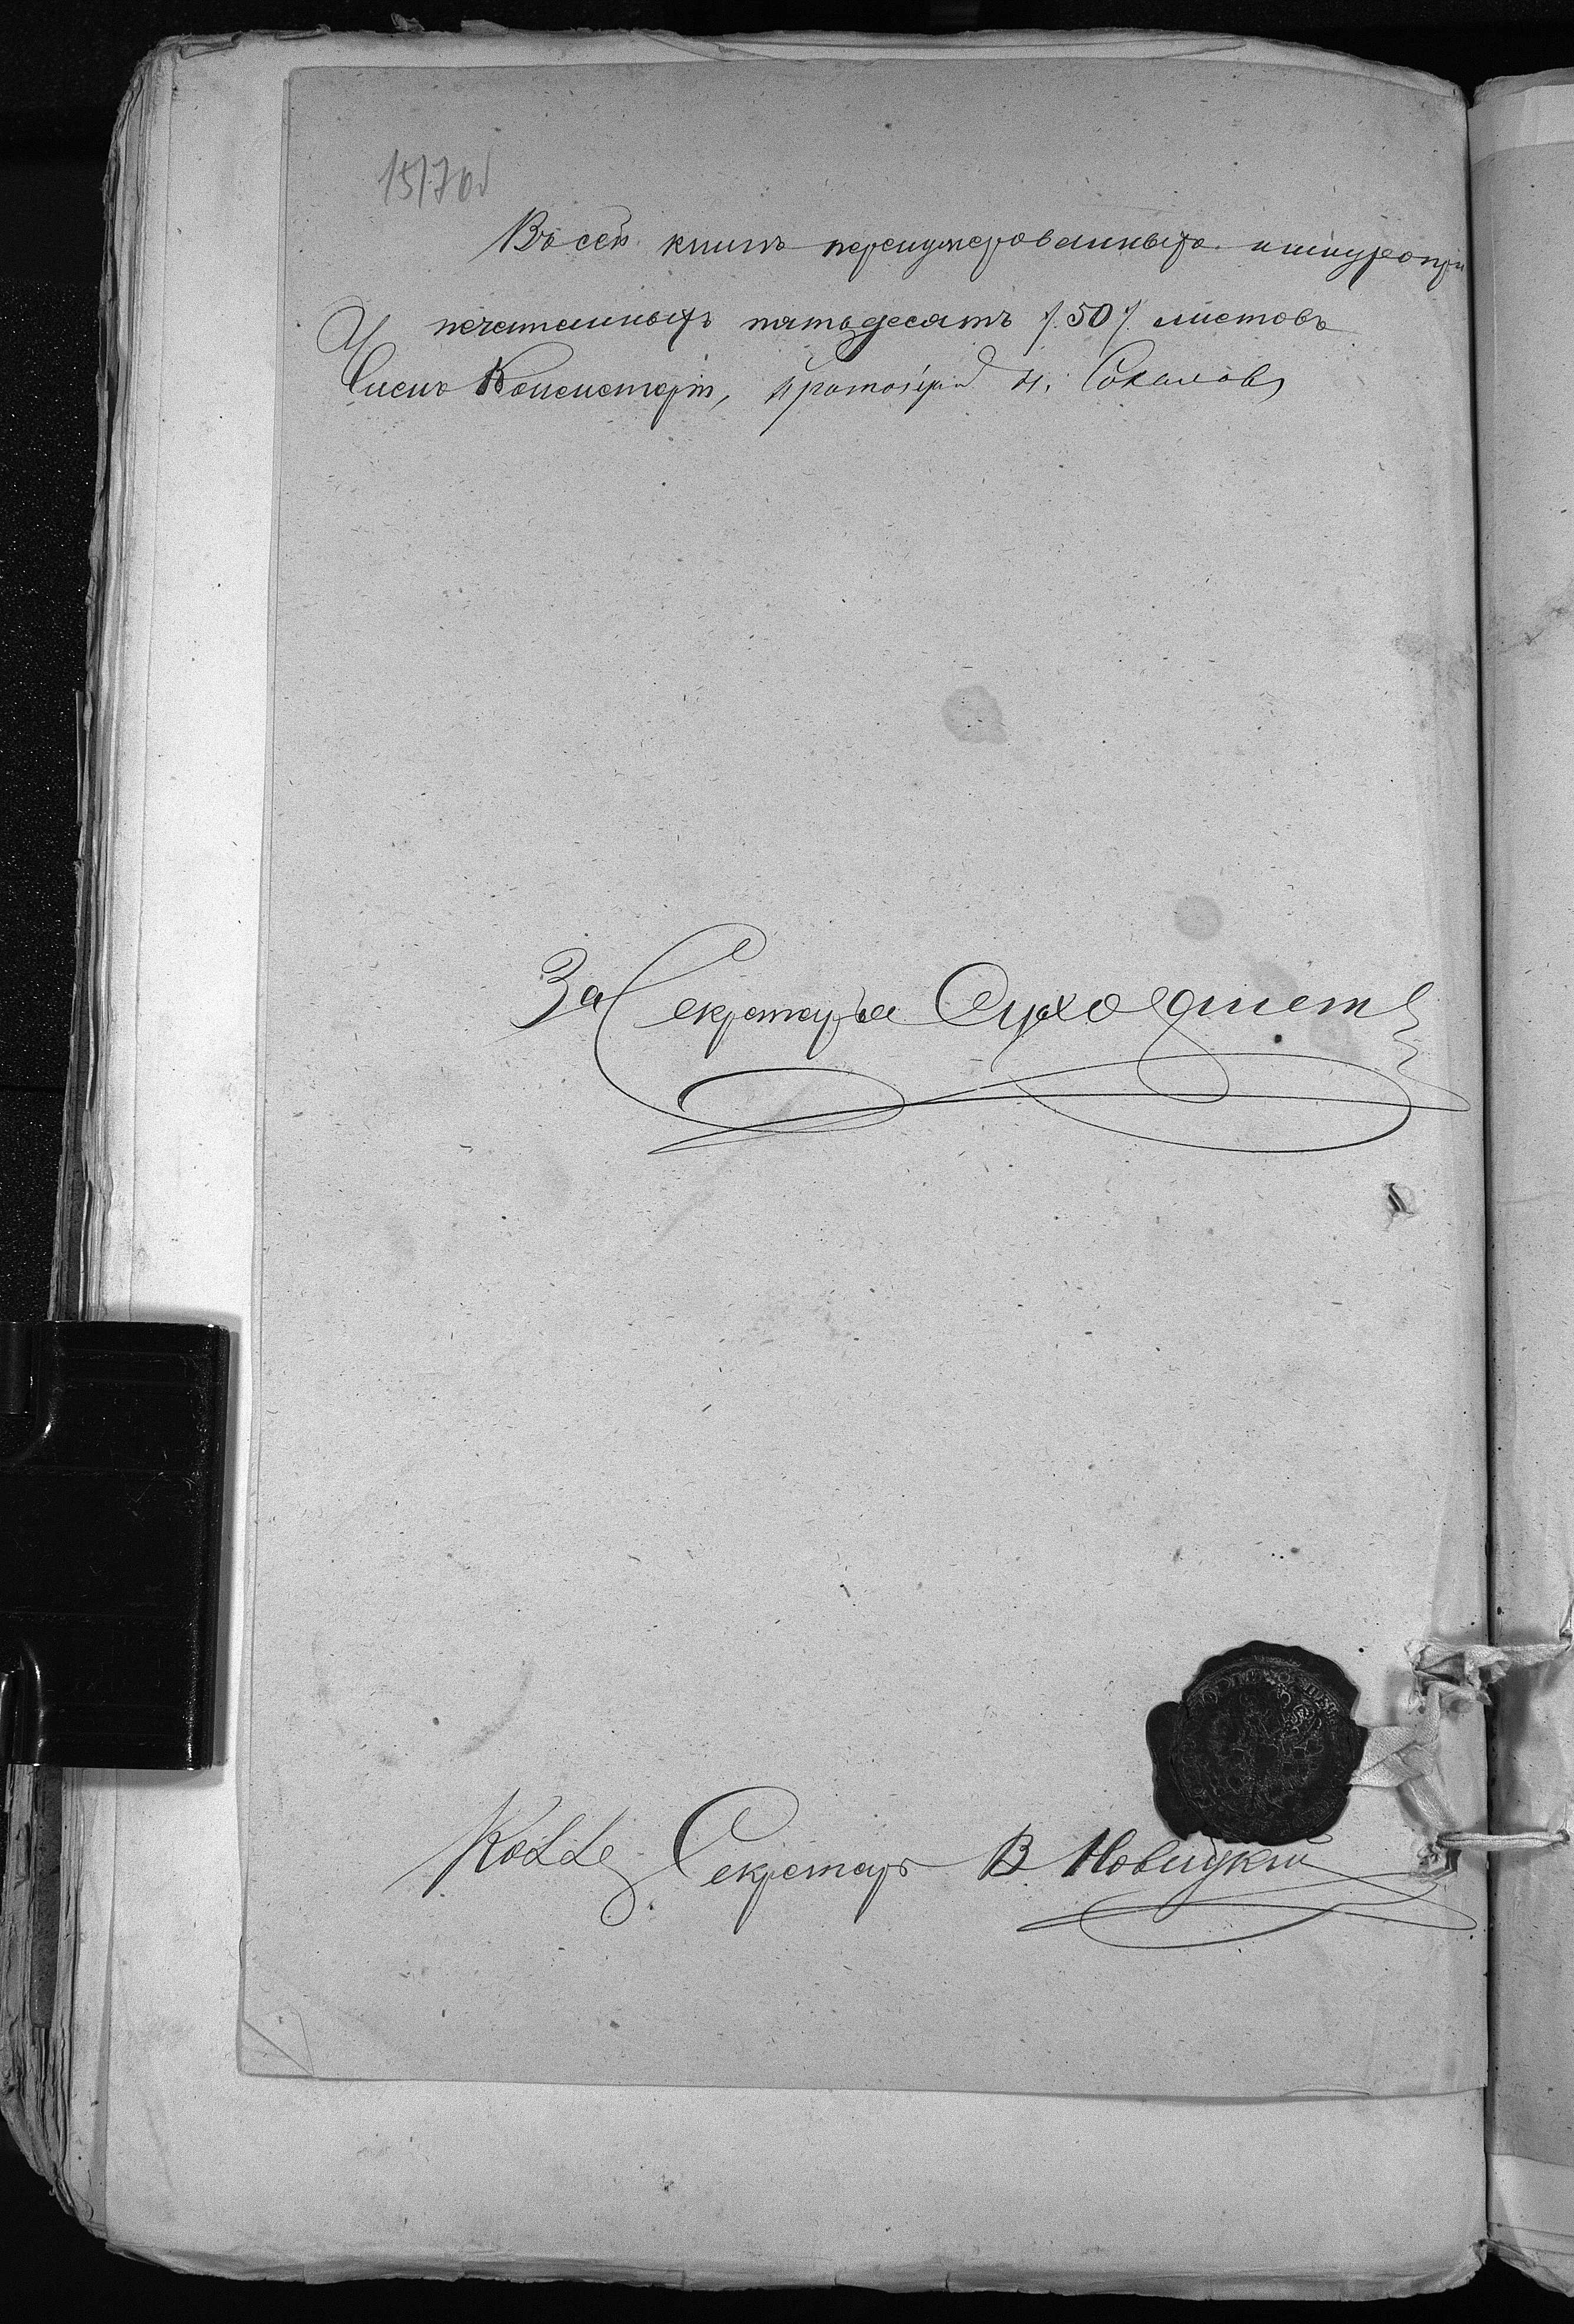 1517об
Въ сей книгѣ перенумерованныхъ и шнуропри
печатанныхъ пятьдесятъ /.50/. листовъ
Членъ Консисторіи, Протоіерей Н. Соколовъ
За Секретаря
Колле Секретарь В. Новицкій